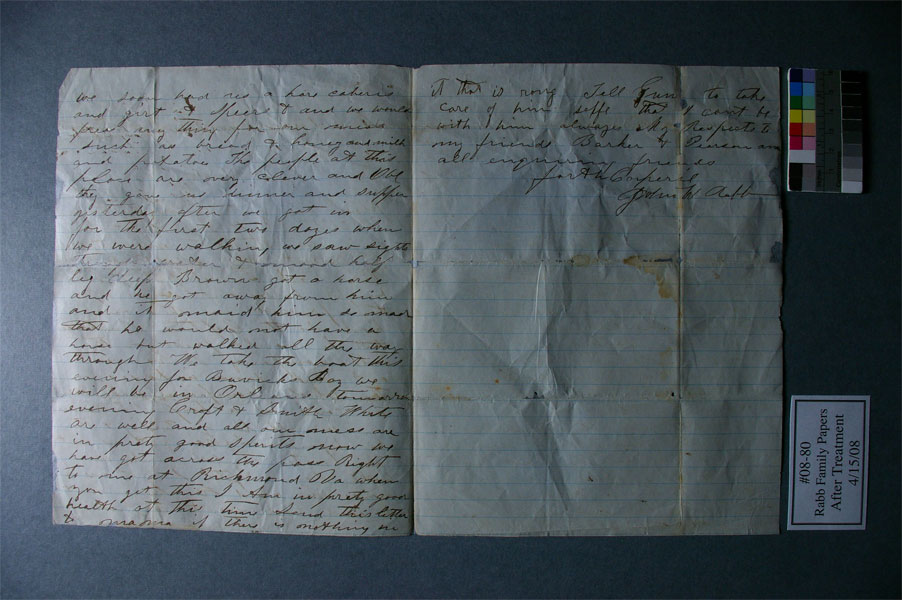 we soon had us a hors
and got Speers & and we would
any thing for our
such as bread & honey and milk
and potatoes the people at this
place are very clever and
they gave us dinner and supper
yesterday after we got in
for the first two days when
we were walking we saw sights
& around half
leg deep Brown got a horse
and he got away from him
and it maid him so mad
that he would not have a
horse but walked all the way
through We take the boat this
evening for Bay we
will be in Orleans tomorrow
evening Croft & Smith
are well and all our mess are
in prety good Spirits now we
have got across the pass Right
to me at Richmond Va when
you get this I Am in prety good
health at this time Send this letter
& mama if there is nothing in
it that is rong Tell to take
care of him self that I cant be
with him always My Respects to
my friends Barker & Pearson and
all enquiring friends
for
John W Rabb
#08-80
Rabb Family Papers
After Treatment
4/15/08